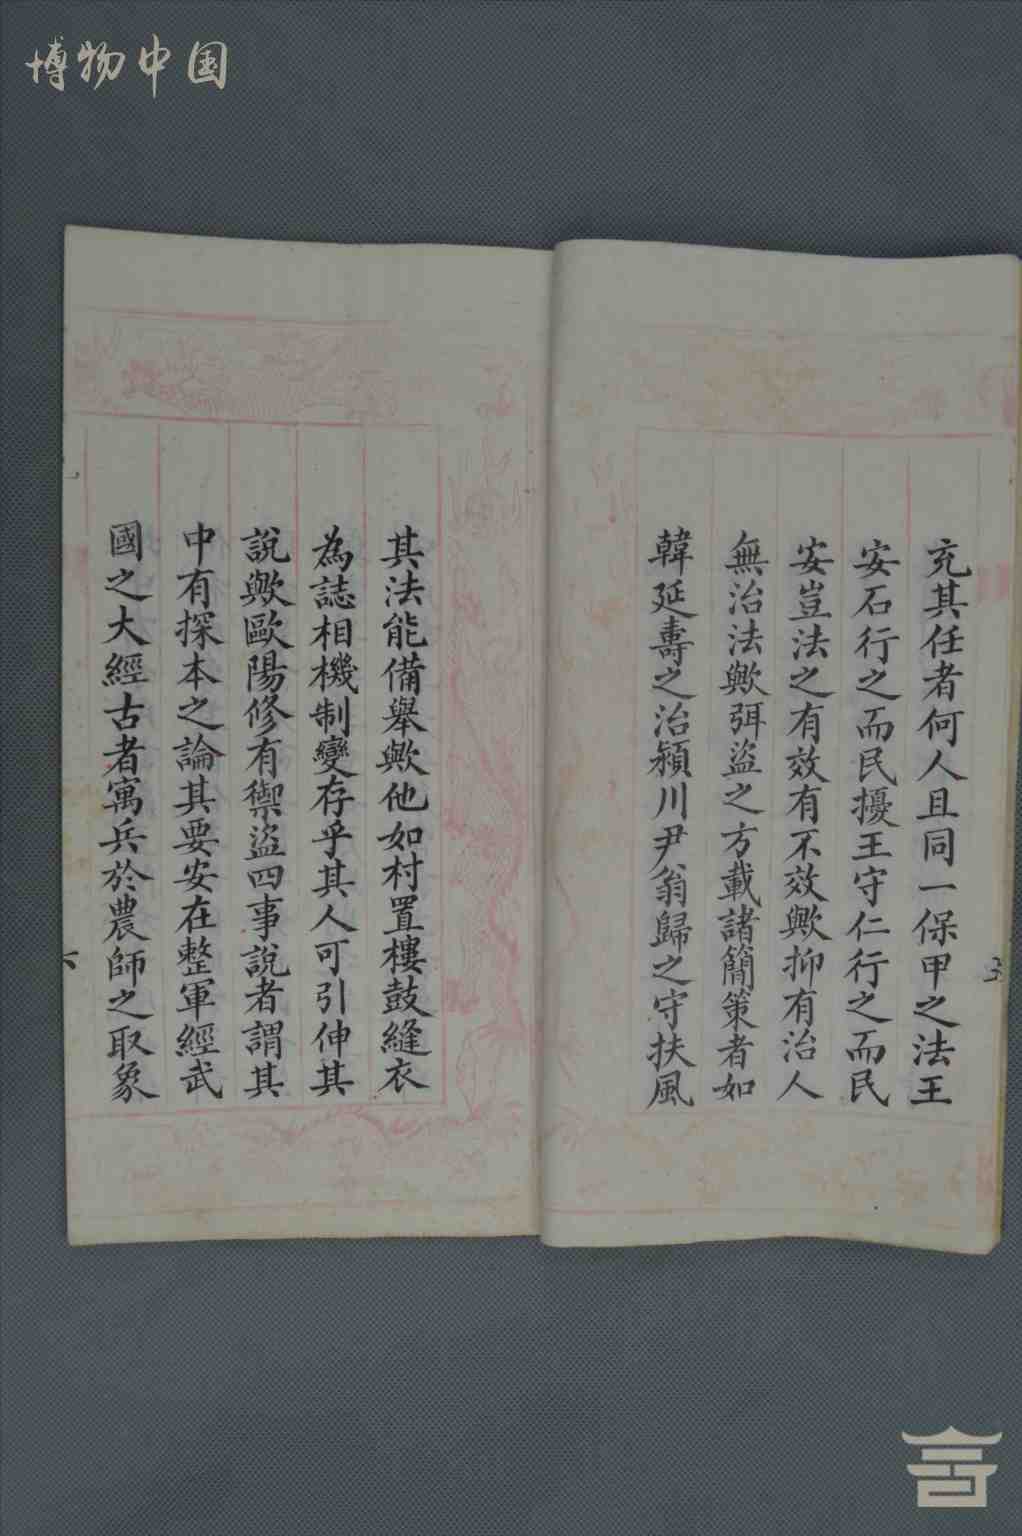 博物中国
充其任者何人且同一保甲之法王
安石行之而民擾王守仁行之而民
安豈法之有效有不效歟抑有治人
無治法歟弭盜之方載諸簡策者如
韓延壽之治潁川尹翁歸之守扶風
其法能備舉歟他如村置樓鼓縫衣
為誌相機制變存乎其人可引伸其
說歟歐陽修有禦盜四事說者謂其
中有探本之論其要安在整軍經武
國之大經古者寓兵於農師之取象
六